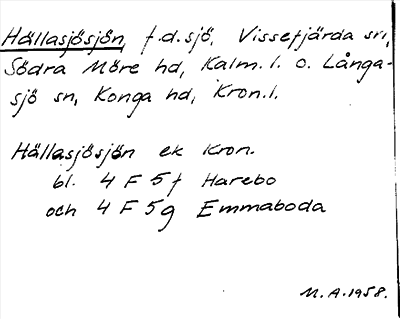 Hällasjösjön, f.d.sjö, Vissefjärda sn,
Södra Möre hd, Kalm. l. o. Långa-
sjö sn, Konga hd, Kron.l.
Hällasjösjön ek Kron.
bl. 4 F 5 f Harebo
och 4 F 5g Emmaboda
M.A.1958.